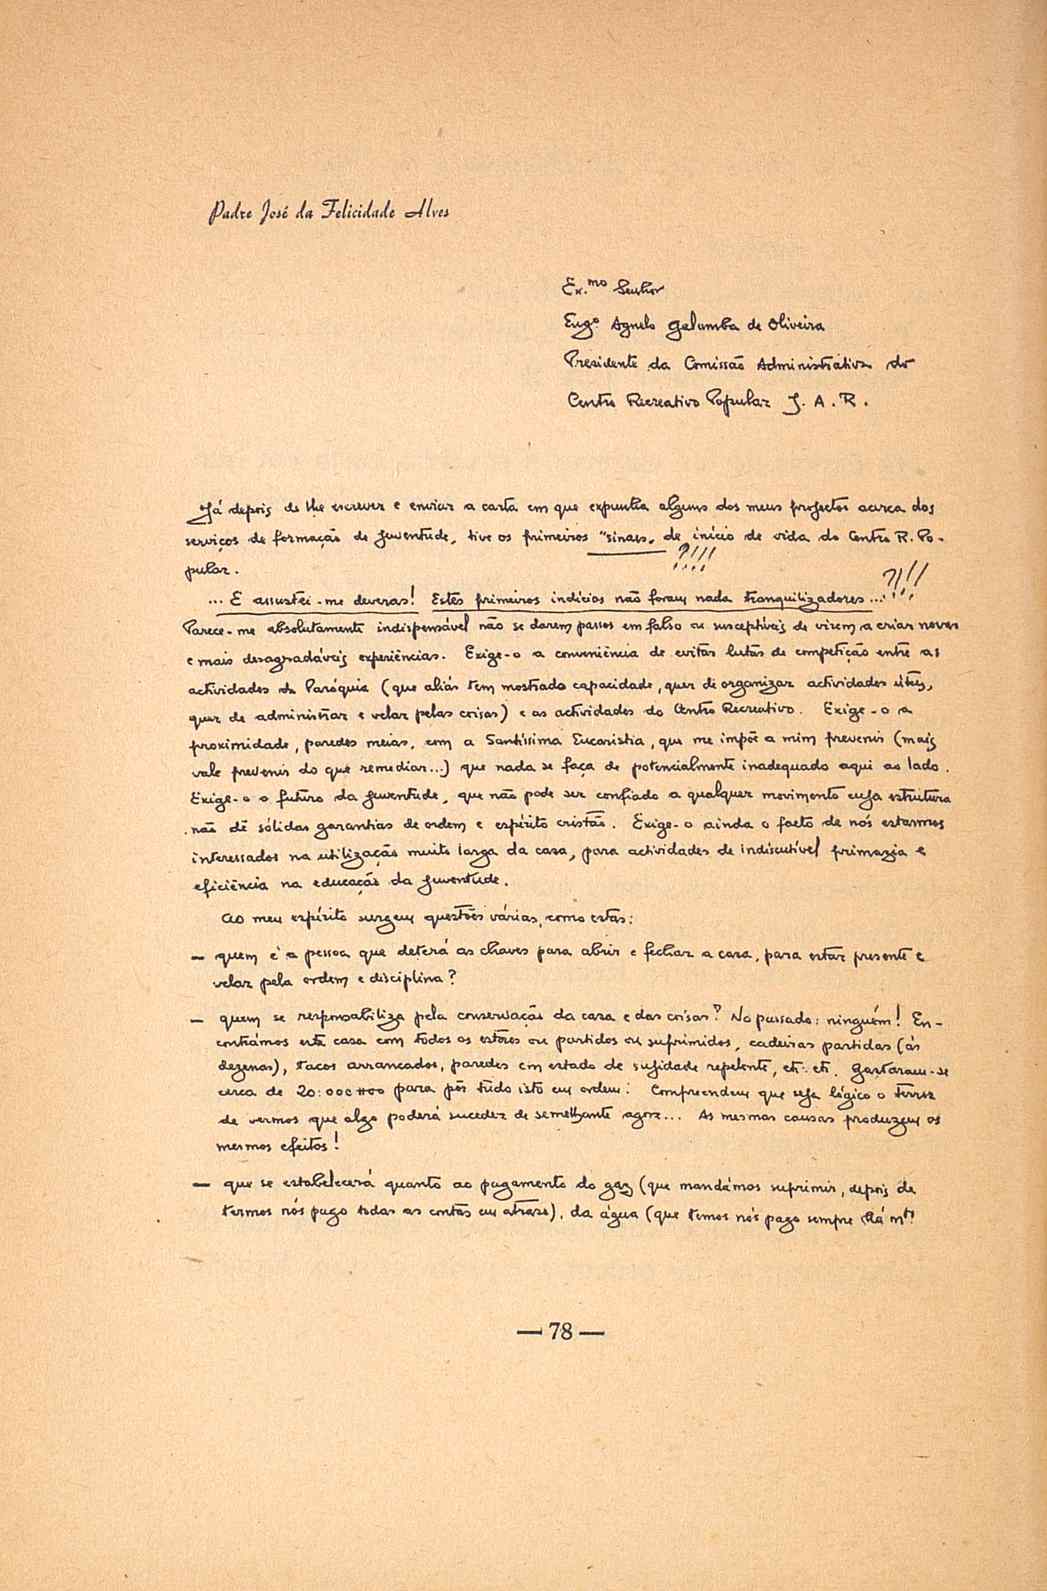 Padre José da Felicidade Alves
Ex.mo Senhor
Engº Agnelo Galamba de Oliveira
Presidente da Comissão Administrativa do
Centro Recreativo Popular J. A. R.
Já depois de lhe escrever e enviar a carta em que expunha alguns dos meus projectos acerca dos
serviços de formação de juventude, tive os primeiros "sinais" de início de vida do Centro R. Po-
pular. ?!!!
... E assustei-me deveras! Estes primeiros indícios não foram nada tranquilizadores... ?!!!
Parece-me absolutamente indispensável não se darem passos em falso ou susceptíveis de virem a criar novas
e mais desagradáveis experiências. Exige-o a conveniência de evitar lutas de competição entre as
actividades da Paróquia (que aliás tem mostrado capacidade, quer de organizar actividades úteis,
quer de administrar e velar pelas coisas) e as actividades do Centro Recreativo. Exige-o a
proximidade, paredes meias, com a Santíssima Eucaristia, que me impõe a mim prevenir (mais
vale prevenir do que remediar...) que nada se faça de potencialmente inadequado aqui ao lado.
Exige-o o futuro da juventude, que não pode ser confiado a qualquer movimento cuja estrutura
não dê sólidas garantias de ordem e espírito cristão. Exige-o ainda o facto de nós estarmos
interessados na utilização muito larga da casa, para actividades de indiscutível primazia e
eficiência na educação da juventude.
Ao meu espírito surgem questões várias, como estas:
— quem é a pessoa que deterá as chaves para abrir e fechar a casa, para estar presente e
velar pela ordem e disciplina?
— quem se responsabiliza pela conservação da casa e das coisas? No passado: ninguém! En-
contrámos esta casa com todos os estores ou partidos ou suprimidos, cadeiras partidas (às
dezenas), tacos arrancados, paredes em estado de sujidade repelente, etc. etc. Gastaram-se
cerca de 20:000$00 para pôr tudo isto em ordem! Compreendem que seja lógico o terror
de vermos que algo poderá suceder de semelhante agora... As mesmas causas produzem os
mesmos efeitos!
— que se estabelecerá quanto ao pagamento do gaz (que mandámos suprimir, depois de
termos nós pago todas as contas em atraso), da água (que temos nós pago sempre há mtº
— 78 —